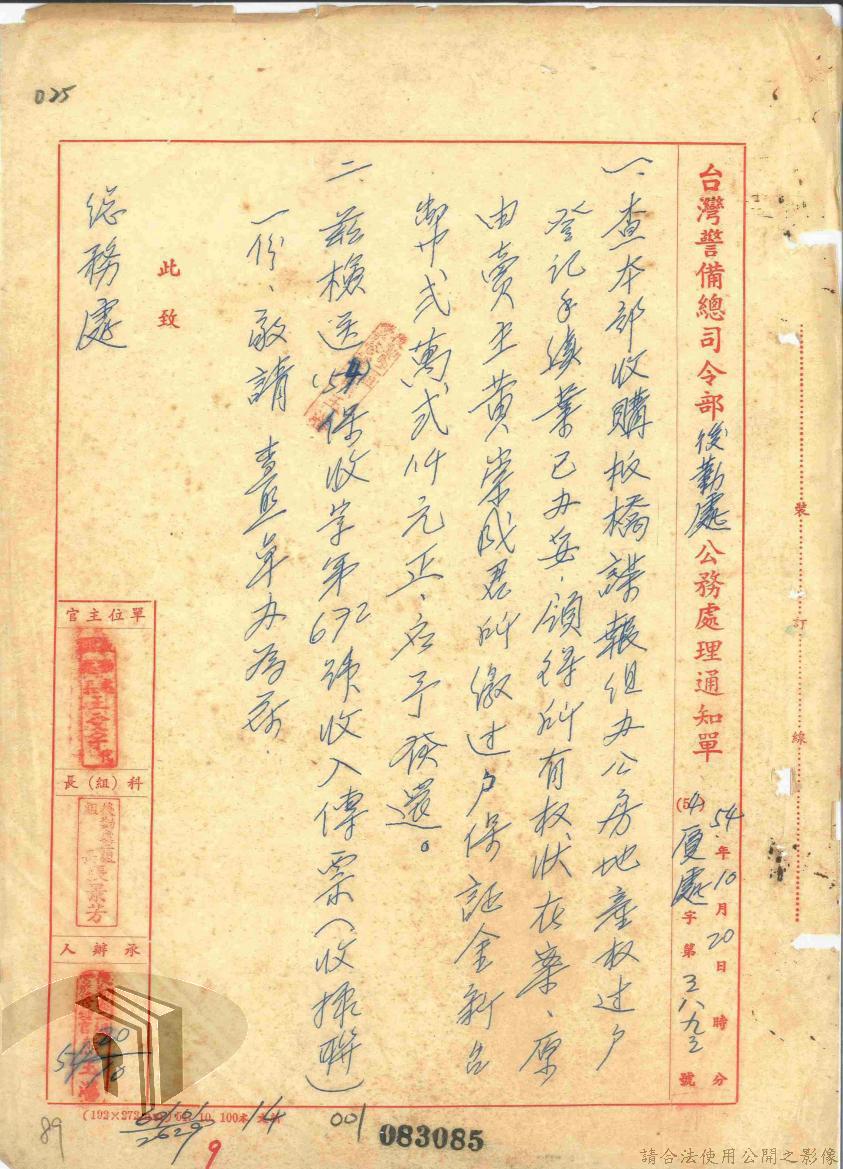 025
台灣警備總司令部後勤處公務處理通知單
54年10月20日 時 分
(54)厦處字第三八九三號
一、查本部收購板橋諜報組办公房地產权过户
登记手续業已办妥、領得所有权状在案、原
由賣主黄崇成君所缴过户保証金新台
幣弍萬弍仟元正、应予發還。
二、茲檢送(54)保收字第672號收入傳票(收據聯)
一份、敬請 查照 单办為荷.
此致
總務處
裝 訂 線
單位主官
科(組)長
景芳
承辦人
54 20/10
(192×272
10, 100本
14
001
2629
9
89
083085
請合法使用公開之影像